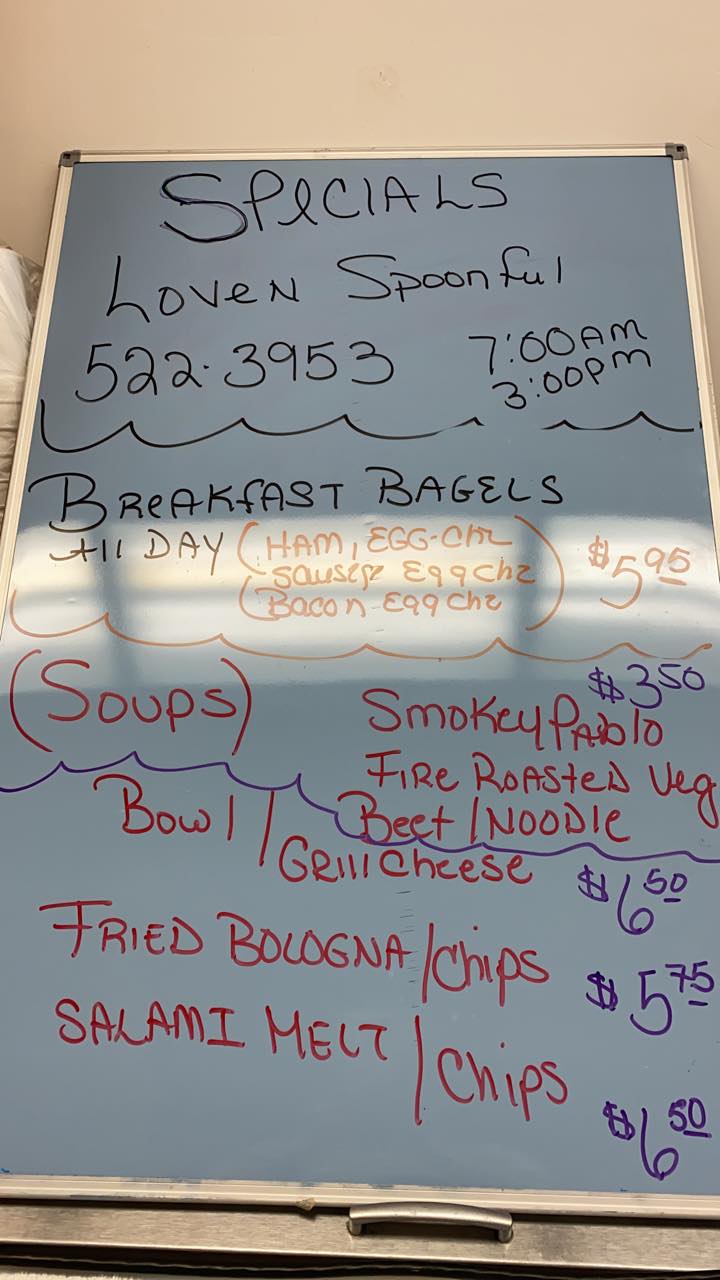 SPECIALS
Loven Spoonful
522-3953 7:00AM
3:00pm
BREAKFAST BAGELS
All DAY (HAM, EGG-Chz
Sausege EggChz
(Bacon-EggChz) $5.95
(Soups) $3.50
SmokeyPablo
FIRE ROASTED Veg
Beef/NOODle
Bowl/
GRIllCheese $6.50
FRIED BOLOGNA/Chips $5.75
SALAMI MELT/Chips $6.50